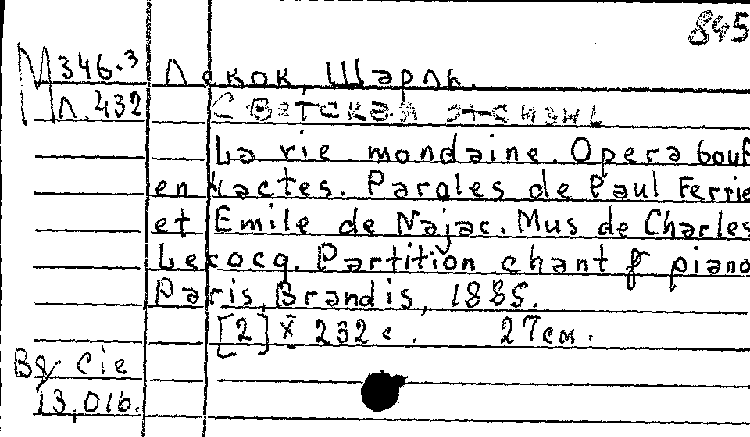 845
М 346.3 Лекок, Шарль.
Л. 432 Светская жизнь
La vie mondaine. Opera bouf
en 4 actes. Paroles de Paul Ferrie
et Emile de Najac. Mus de Charles
Lecocq. Partition chant & piano
Paris, Brandis, 1885.
[2] X 232 с. 27 см.
B & Cie
13,016.